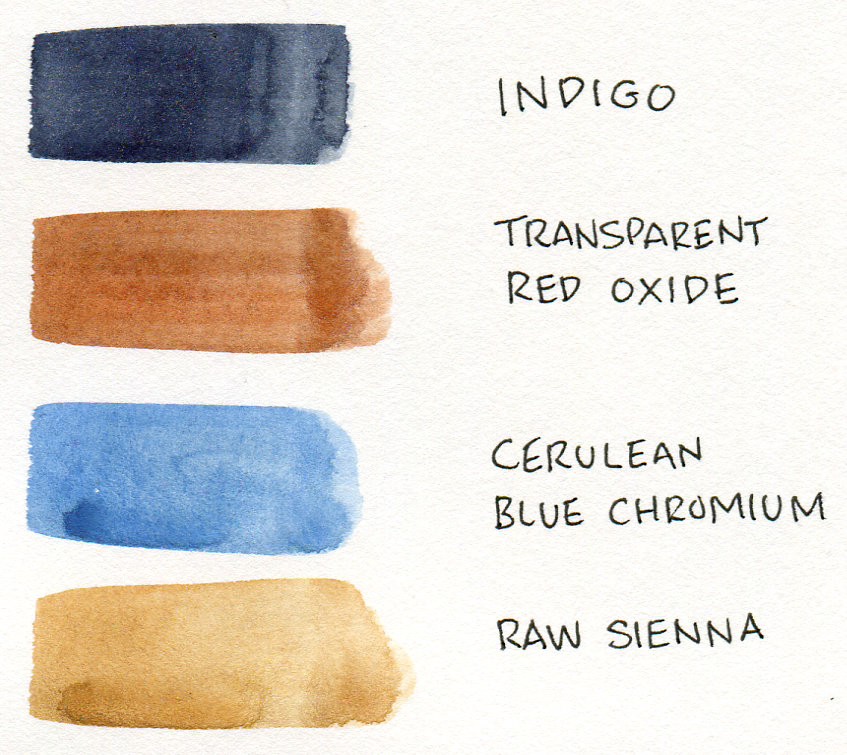 INDIGO
TRANSPARENT
RED OXIDE
CERULEAN
BLUE CHROMIUM
RAW SIENNA